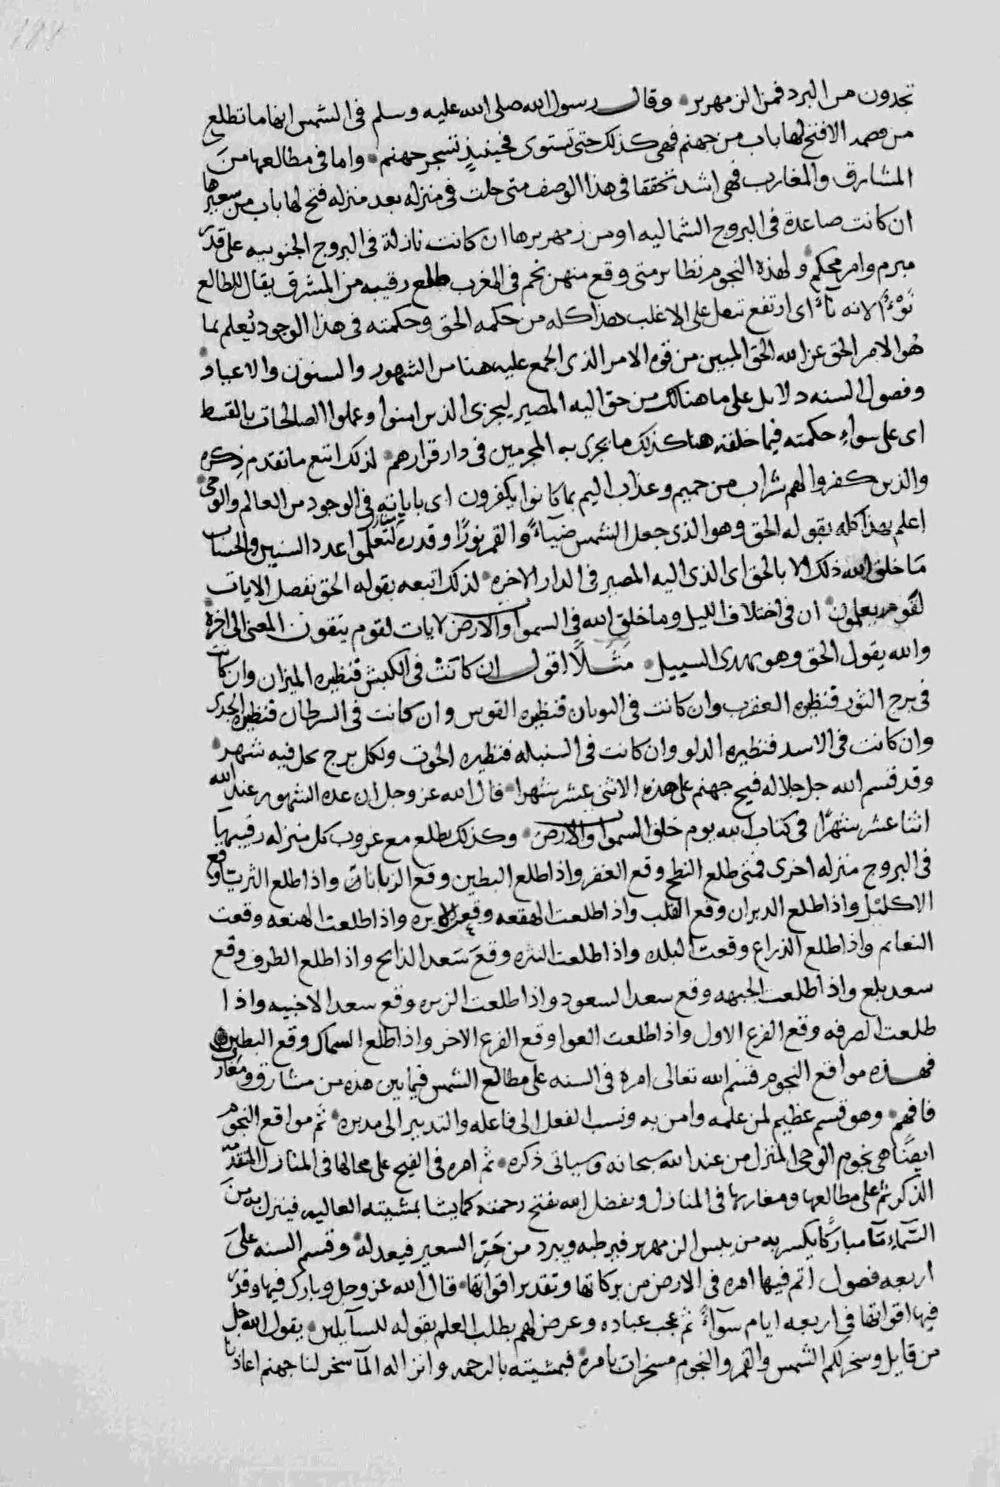 188
تجدون من البرد فمن الزمهرير وقال رسول الله صلى الله عليه وسلم في الشمس انها ما تطلع
من الا فتح لها باب من جهنم فهى كذلك حتى تستوى فحينيذ تسجر جهنم واما فى مطالعها من
المشارق والمغارب فهى اشد تحققا فى هذا الوصف متى حلت فى منزله بعد منزله فتح لها باب من سعيرها
ان كانت صاعدة فى البروج الشماليه او من زمهريرها ان كانت نازلة فى البروج الجنوبيه على قدر
مبرم وامر محكم ولهذه النجوم نظاير متى وقع منهن نجم فى المغرب طلع رقيبه من المشرق يقال للطالع
نَوْءٌ لانه نآءَ اى ارتفع على الاغلب هذا كله من حكمه الحق وحكمته فى هذا الوجود يُعلم بما
هو الامر الحق عن الله الحق المبين من قوم الامر الذى اجمع عليه هنا من الشهور والسنون والاعياد
وفصول السنه دلايل على ما هنالك من حق اليه المصير ليجزى الذين امنوا وعملوا الصالحات بالقسط
اى على سواءِ حكمته فيما خلقه هنا كذلك ما يجرى به المجرمين فى دار قرارهم لذلك اتبع ما تقدم ذكره
والذين كفروا لهم شراب من حميم وعذاب اليم بما كانوا يكفرون اى باياته فى الوجود من العالم والوحى
اعلم بهذا كله بقوله الحق وهو الذى جعل الشمس ضيآءً والقمر نورًا وقدره منازل لتعلموا عدد السنين والحساب
مَا خلق الله ذلك الا بالحق اى الذى اليه المصير فى الدار الاخره لذلك اتبعه بقوله الحق يفصل الايات
لقوم يعلمون ان فى اختلاف الليل وما خلق الله فى السموات والارض لايات لقوم يتقون المعنى الى اخره
والله يقول الحق وهو يهدى السبيل مَثَلًا اقول ان كانَتْ فى الكبش فنظيره الميزان وان كانت
فى برج الثور فنظيره العقرب وان كانت فى التوبان فنظيره القوس وان كانت فى السرطان فنظيره الجدى
وان كانت فى الاسد فنظيره الدلو وان كانت فى السنبله فنظيره الحوت ولكل برج تحل فيه شهر
وقد قسم الله جل جلاله فيح جهنم على هذه الاثنى عشر شهرا قال الله عز وجل ان عده الشهور عند الله
اثنا عشر شهرًا فى كتاب الله يوم خلق السموات والارض وكذلك يطلع مع غروب كل منزله رقيبها
فى البروج منزله اخرى فمتى طلع النطح وقع الغفر واذا طلع البطين وقع الزبانان واذا طلع الثريا وقع
الاكليل واذا طلع الدبران وقع القلب واذا طلعت الهقعه وقع الابره واذا طلعت الهنعه وقعت
النعايم واذا طلع الذراع وقعت البلده واذا طلعت النثره وقعَ سَعد الذابح واذا طلع الطرف وقع
سعد بلع واذا طلعت الجبهه وقع سعد السعود واذا طلعت الزبره وقع سعد الاخبيه واذا
طلعت الصرفه وقع الفرع الاول واذا طلعت العوا وقع الفرع الاخر واذا طلع السماك وقع البطين
فهذه مواقع النجوم قسم الله تعالى امره فى السنه على مطالع الشمس فيما بين هذه من مشارق ومغارب
فافهم وهو قسم عظيم لمن علمه وامن به ونسب الفعل الى فاعله والتدبير الى مدبره ثم مواقع النجوم
ايضًا هى نجوم الوحى المنزل من عند الله سبحانه وسياتى ذكره ثم امره فى الفيح على مجالها فى المنازل المتقدم
الذكر ثم على مطالعها ومغاربها فى المنازل وبفضل الله يفتح رحمته كما يشا بمشيته العاليه فينزل به من
السّماءِ مآ مباركًا يكسر به من يبس الزمهرير فيرطبه ويبرد من حَرّ السعير فيعدله وقسم السنه على
اربعه فصول اتم فيها امره فى الارض من بركاتها وتقدير اقواتها قال الله عز وجل وبارك فيها وقدر
فيها اقواتها فى اربعه ايام سوآءً ثم عجب عباده وعرض لهم بطلب العلم بقوله للسآيلين يقول الله جل
من قايل وسخر لكم الشمس والقمر والنجوم مسخرات بامره فبمشيته بالرحمه وانزاله المآ سخر لنا جهنم اعاذنا